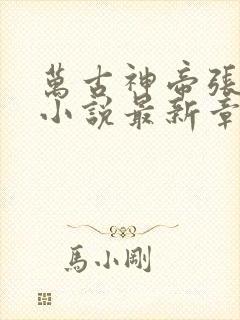 萬古神帝張
小說最新章
馬小剛